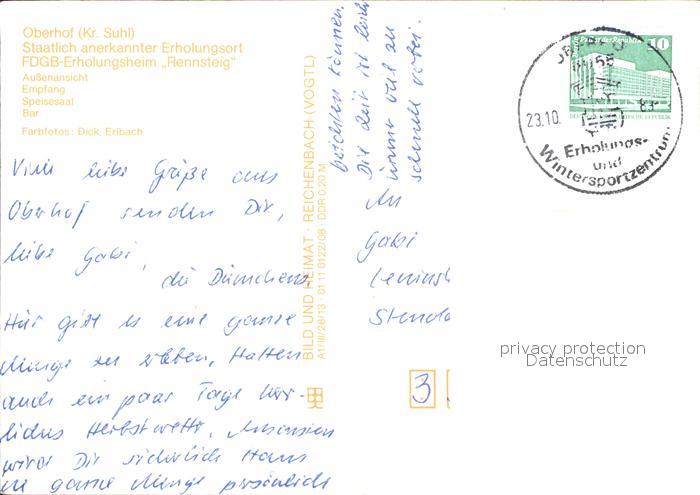 Oberhof (Kr. Suhl)
Staatlich anerkannter Erholungsort
FDGB-Erholungsheim „Rennsteig"
Außenansicht
Empfang
Speisesaal
Bar
Farbfotos: Dick, Erlbach
Viele liebe Grüße aus
Oberhof senden Dir,
liebe Gabi,
Hier gibt es eine ganze
Menge zu erleben, Hatten
auch ein paar Tage herr-
liches Herbstwetter. Ansonsten
wird Dir sicherlich Hans
ne ganze Menge persönlich
berichten können.
Die Zeit ist leider
immer viel zu
schnell vorbei.
BILD UND HEIMAT · REICHENBACH (VOGTL)
A1/III/26/13 01 11 0122/08 · DDR 0,20 M
An
Gabi
Leninst
Stenda
3
10
23.10. 83-
Erholungs-
und
Wintersportzentrum
privacy protection
Datenschutz